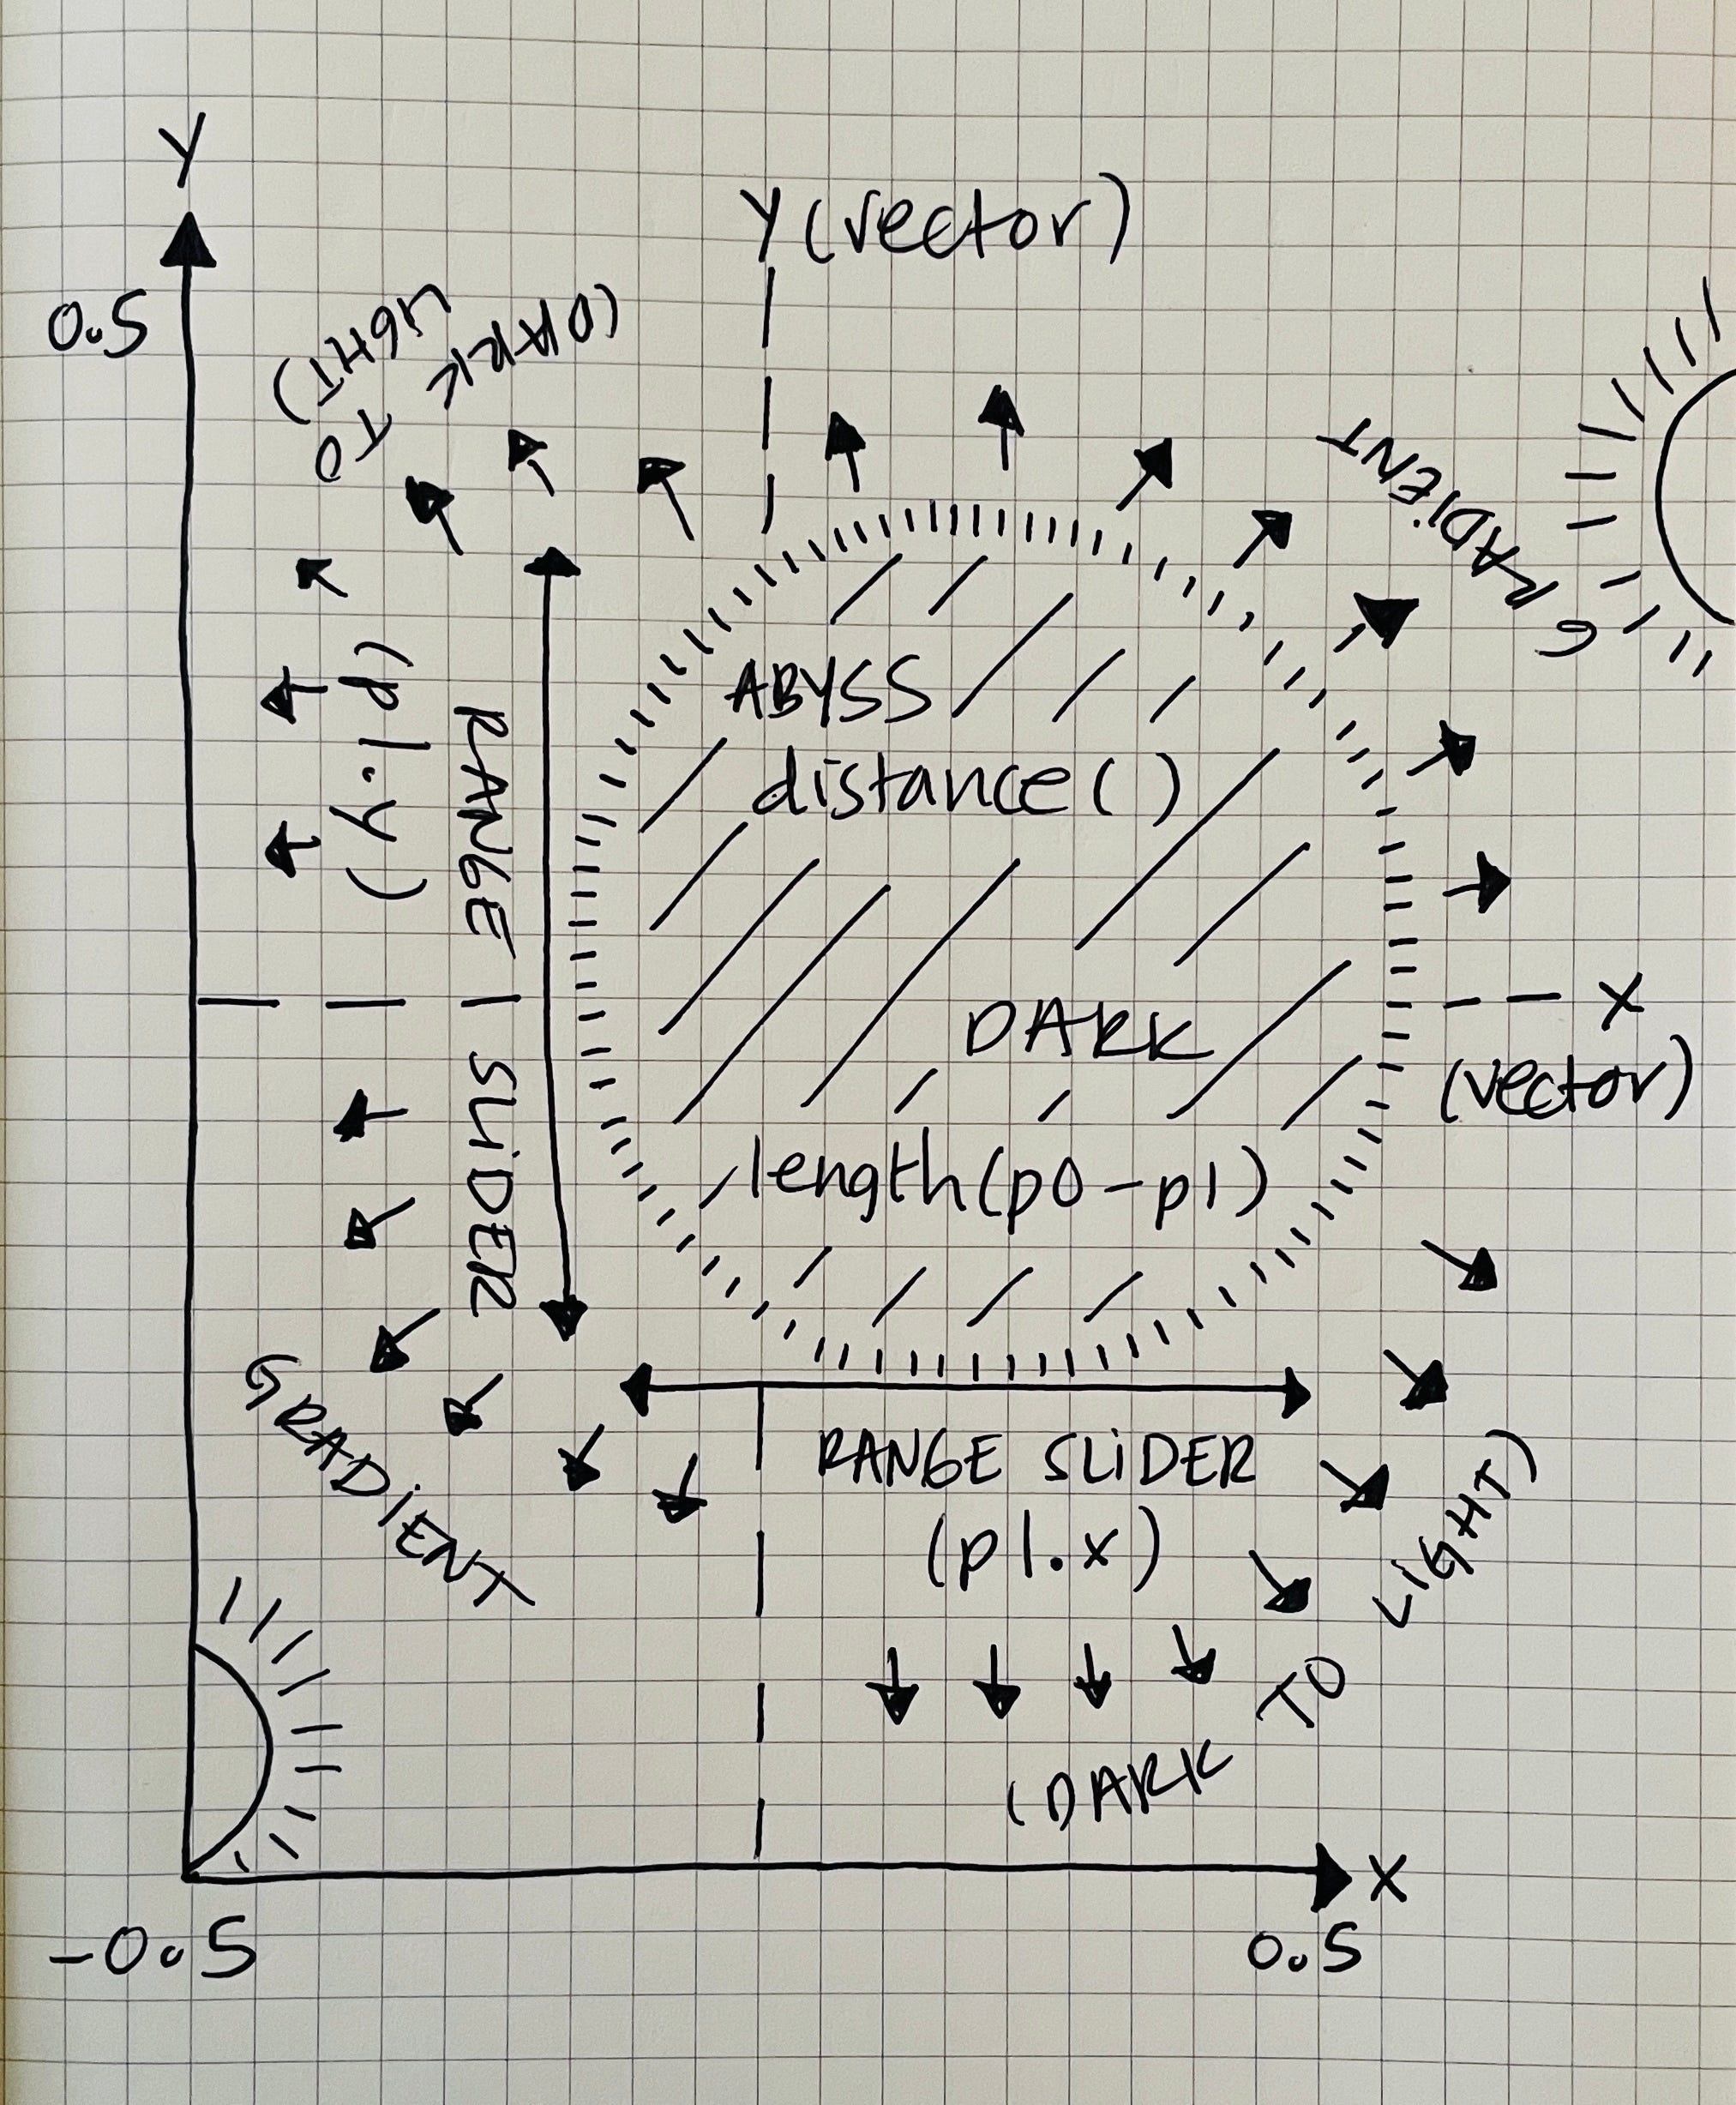 Y
Y (vector)
0.5
(DARK
TO
LIGHT)
GRADIENT
(p1.y)
RANGE SLIDER
ABYSS
distance()
DARK
X
(vector)
length(p0-p1)
GRADIENT
RANGE SLIDER
(p1.x)
(DARK TO LIGHT)
X
-0.5
0.5